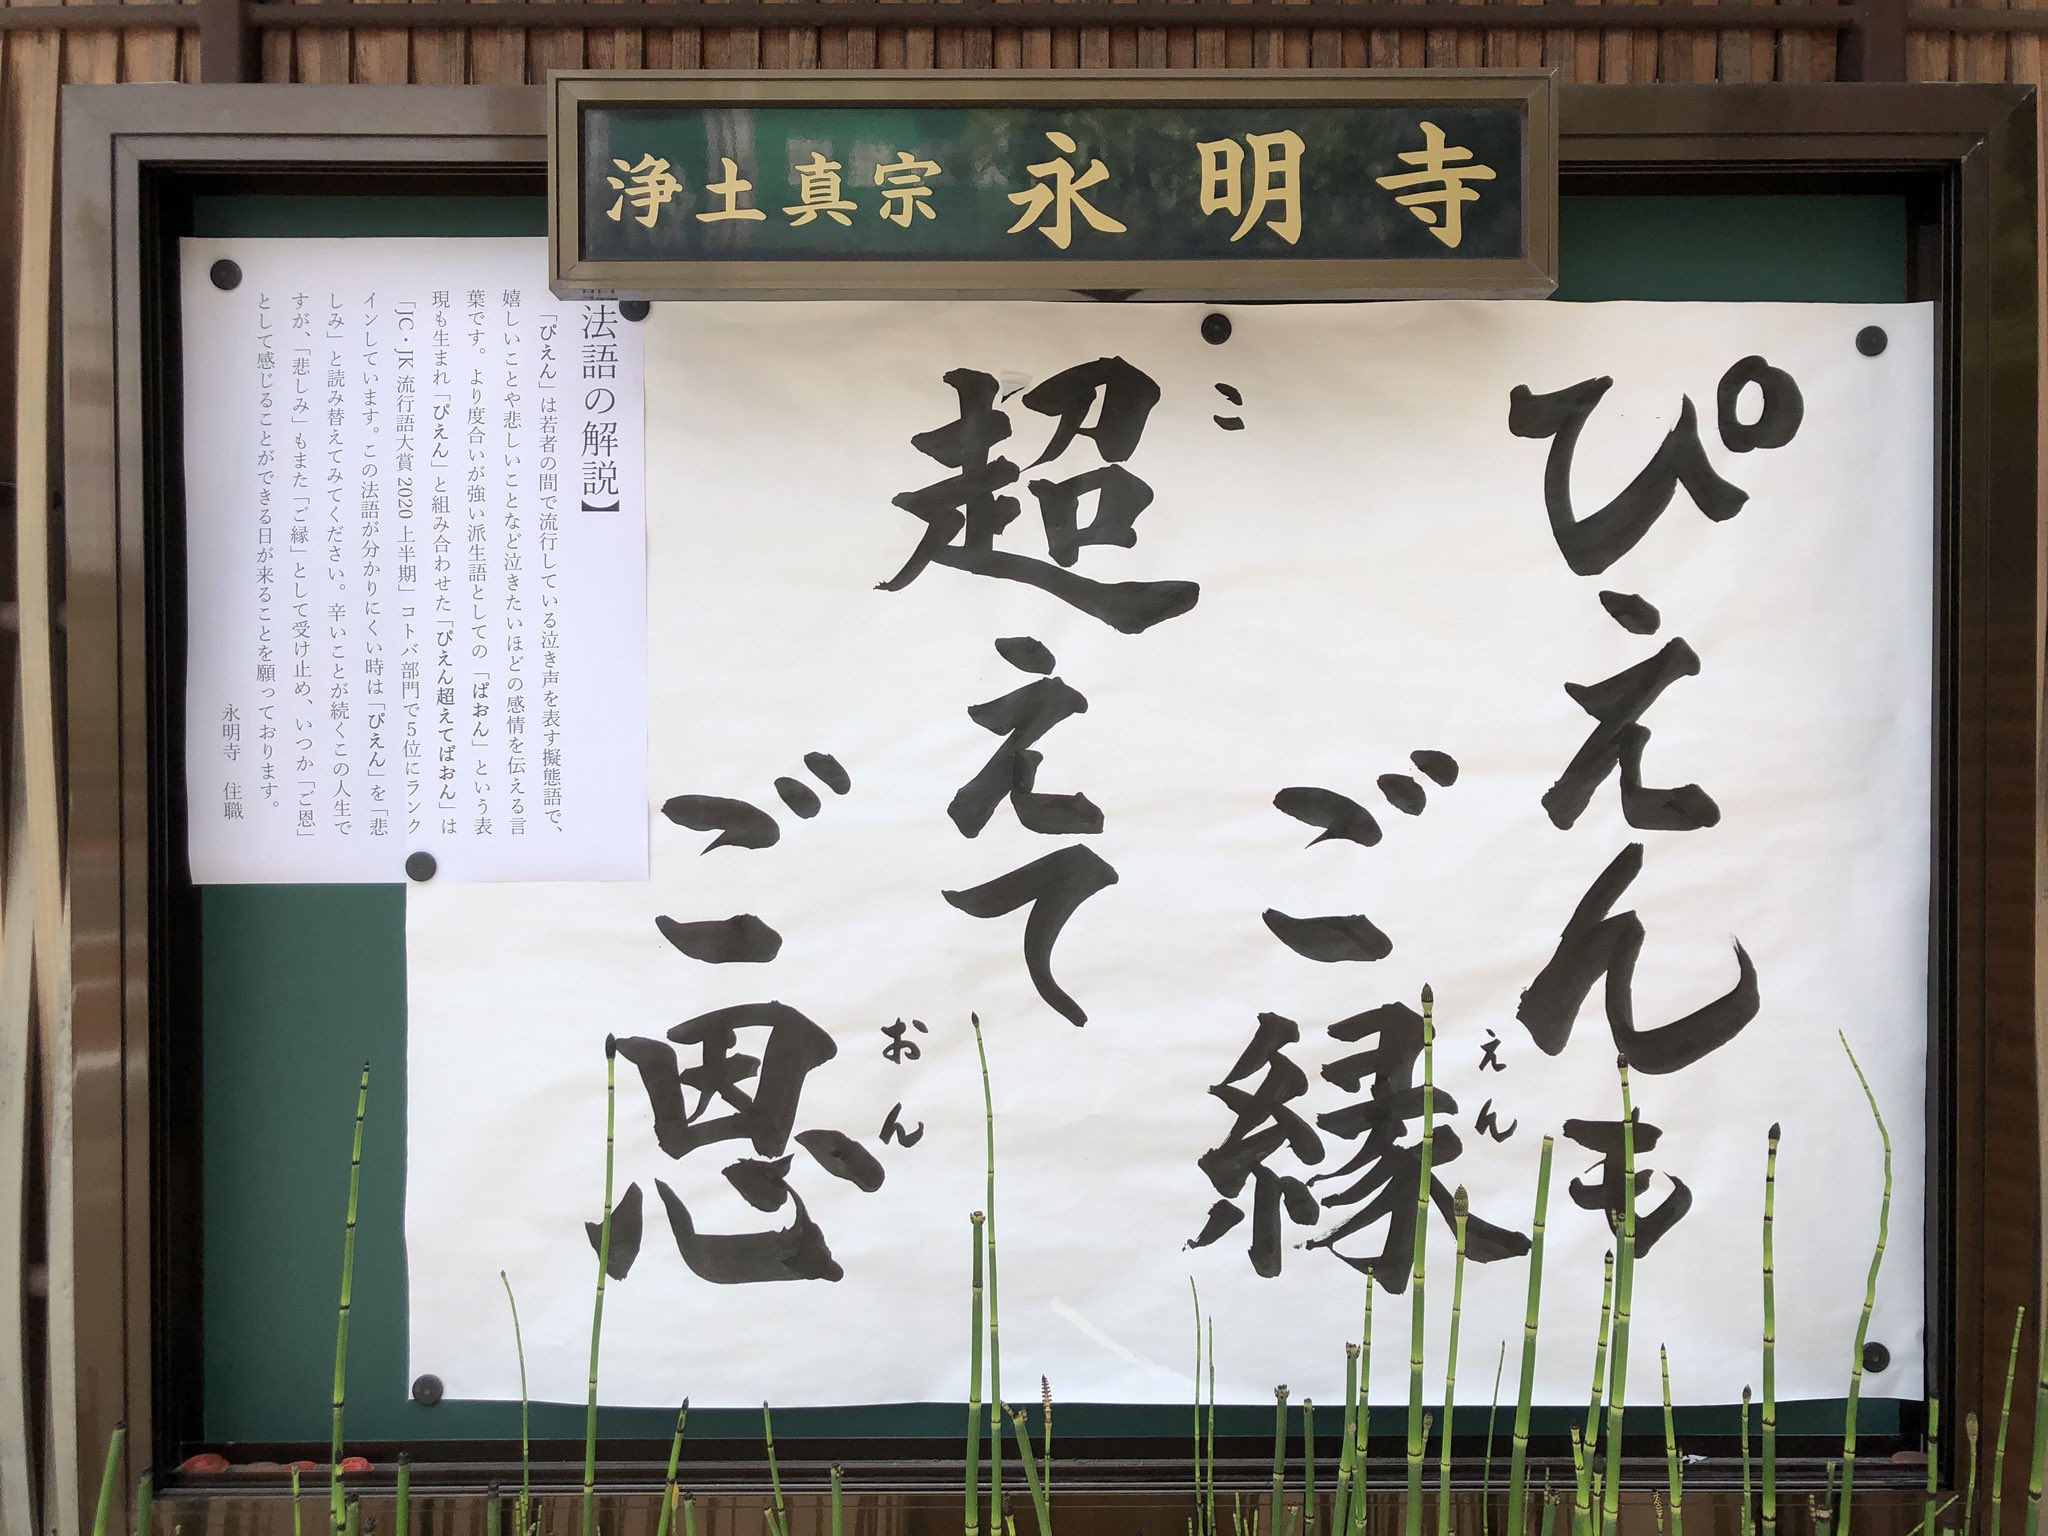 浄土真宗 永明寺
ぴえんも
ご縁
えん
超えて
こ
ご恩
おん
法語の解説】
「ぴえん」は若者の間で流行している泣き声を表す擬態語で、
嬉しいことや悲しいことなど泣きたいほどの感情を伝える言
葉です。より度合いが強い派生語としての「ぱおん」という表
現も生まれ「ぴえん」と組み合わせた「ぴえん超えてぱおん」は
「JC・JK流行語大賞2020上半期」コトバ部門で5位にランク
インしています。この法語が分かりにくい時は「ぴえん」を「悲
しみ」と読み替えてみてください。辛いことが続くこの人生で
すが、「悲しみ」もまた「ご縁」として受け止め、いつか「ご恩」
として感じることができる日が来ることを願っております。
永明寺　住職